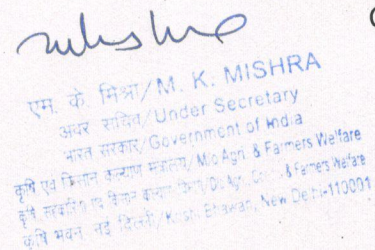 एम. के. मिश्रा/M. K. MISHRA
अवर सचिव/Under Secretary
भारत सरकार/Government of India
कृषि एवं किसान कल्याण मंत्रालय/M/o Agri. & Farmers Welfare
कृषि, सहकारिता एवं किसान कल्याण विभाग/D/o Agri. & Farmers Welfare
कृषि भवन, नई दिल्ली/Krishi Bhawan, New Delhi-110001